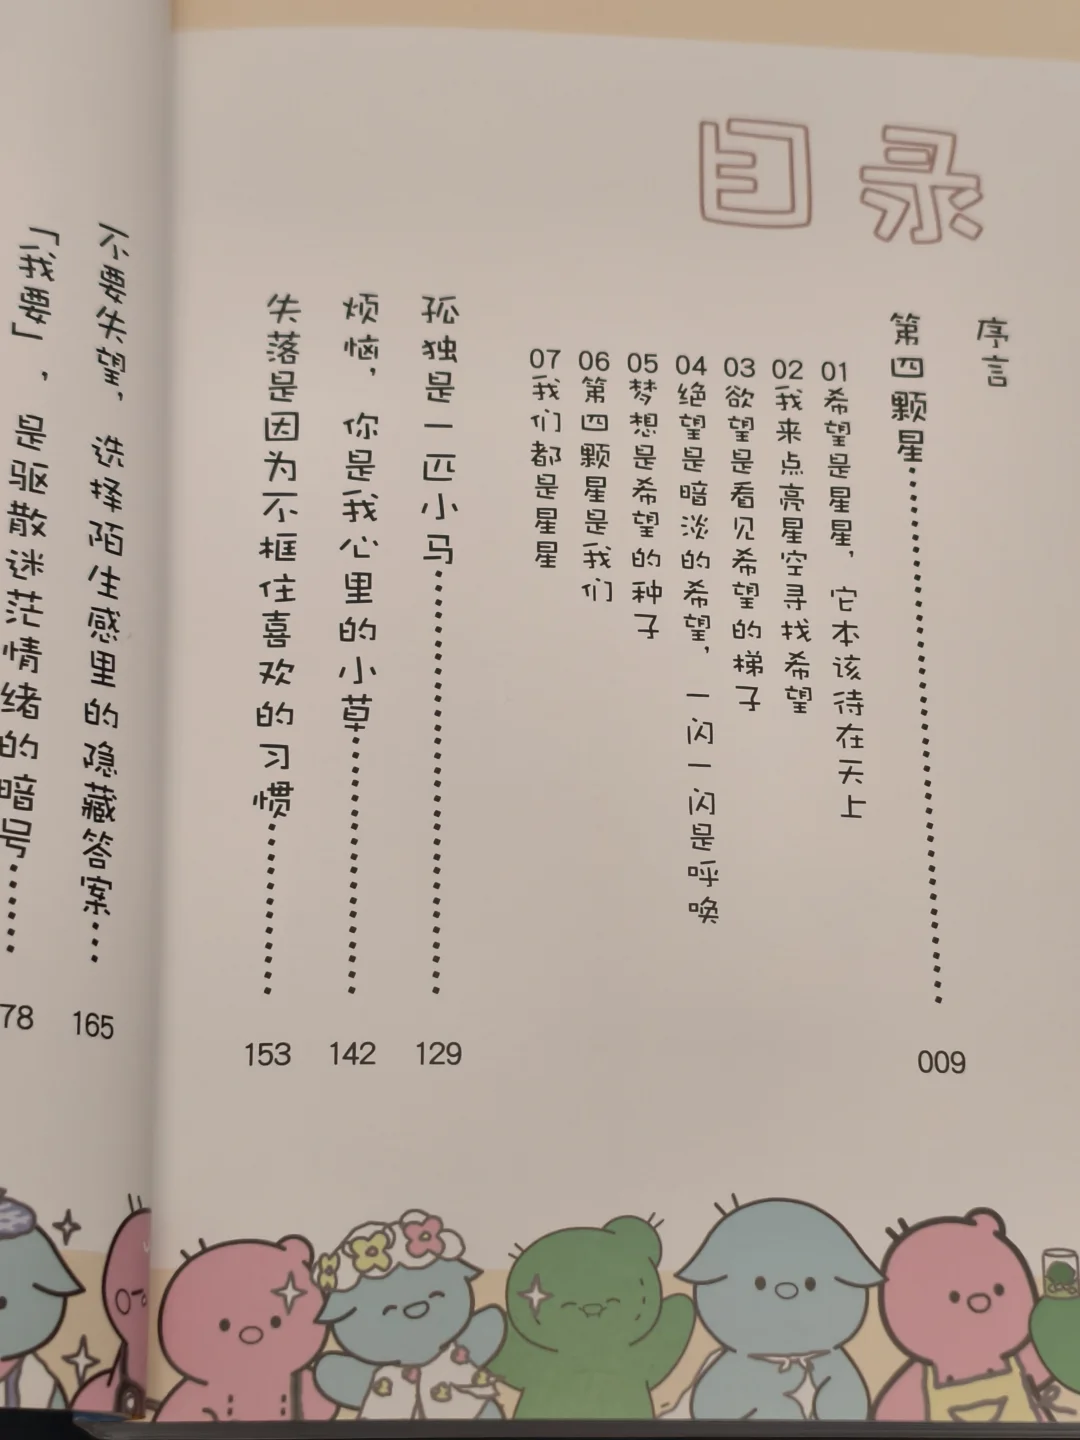 目录
序言
第四颗星……………… 009
01 希望是星星，它本该待在天上
02 我来点亮星空寻找希望
03 欲望是看见希望的梯子
04 绝望是暗淡的希望，一闪一闪是呼唤
05 梦想是希望的种子
06 第四颗星是我们
07 我们都是星星
孤独是一匹小马……………… 129
烦恼，你是我心里的小草……………… 142
失落是因为不框住喜欢的习惯……………… 153
不要失望，选择陌生感里的隐藏答案…… 165
「我要」，是驱散迷茫情绪的暗号…… 78